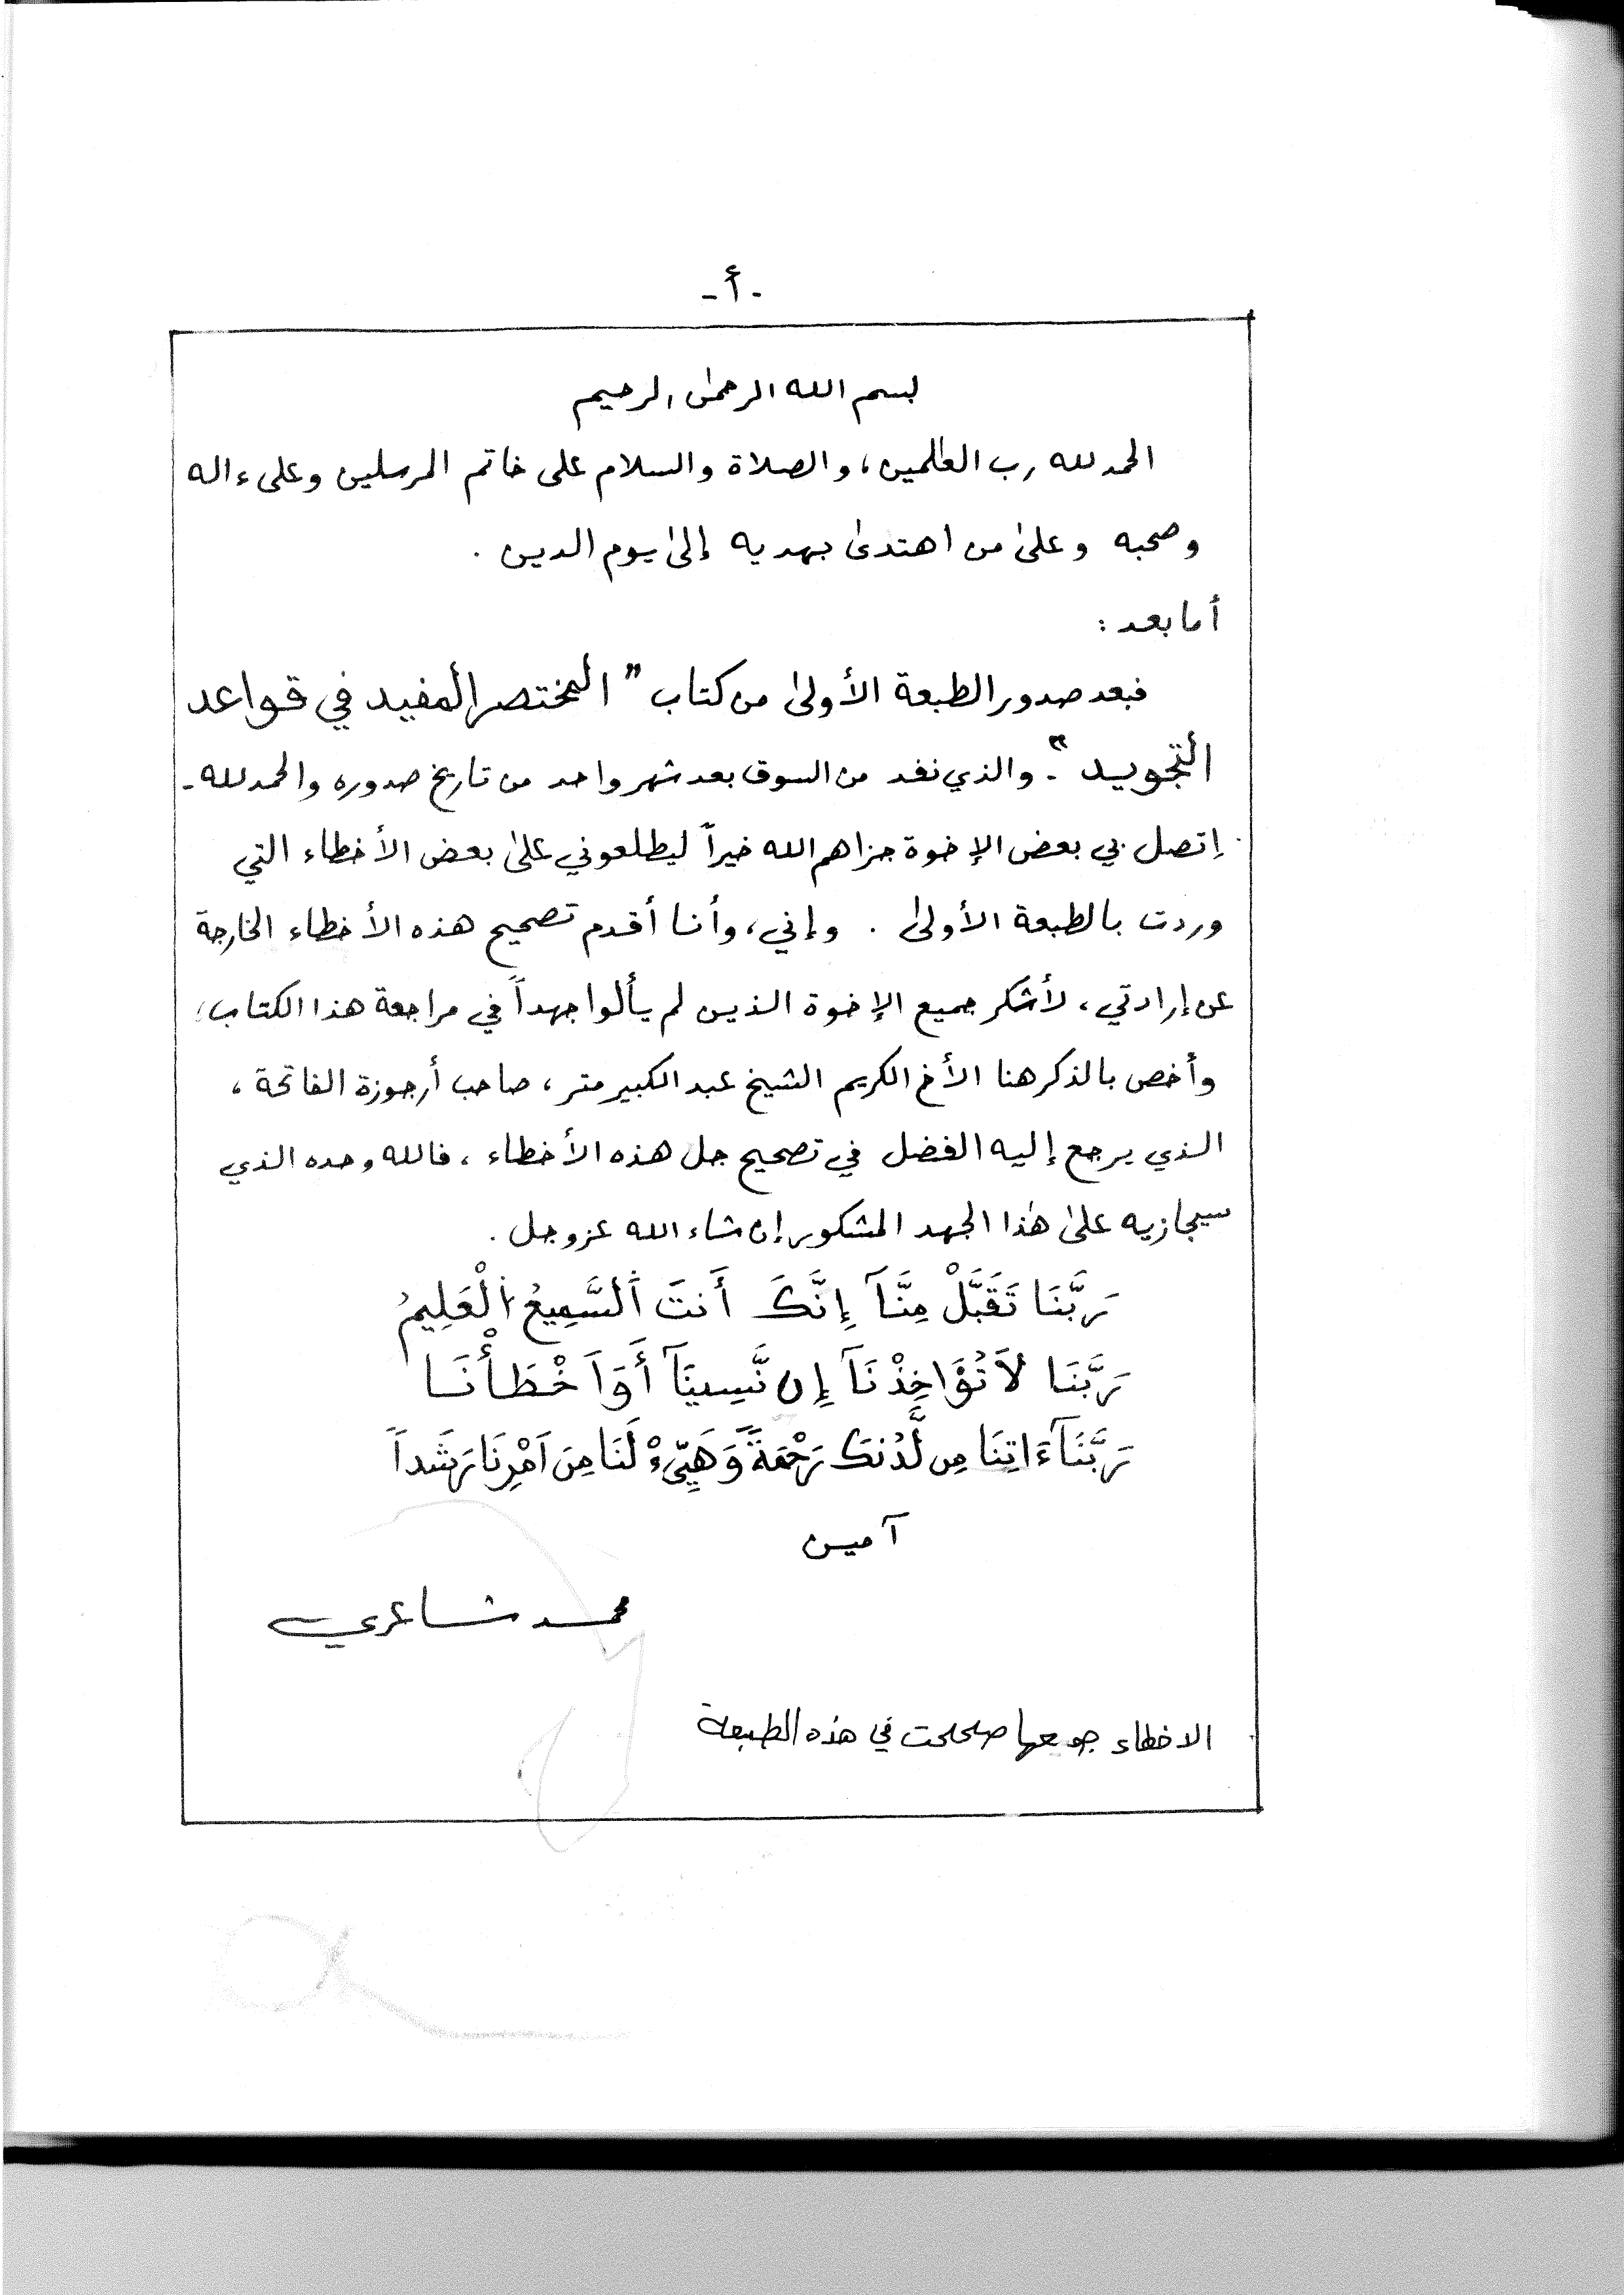 - أ -
بسم الله الرحمٰن الرحيم
الحمد لله رب العٰلمين، والصلاة والسلام على خاتم المرسلين وعلى ءاله
وصحبه وعلىٰ من اهتدىٰ بهديه إلىٰ يوم الدين .
أما بعد :
فبعد صدور الطبعة الأولىٰ من كتاب " المختصر المفيد في قواعد
التجويد "- والذي نفد من السوق بعد شهر واحد من تاريخ صدوره والحمد لله -
إتصل بي بعض الإخوة جزاهم الله خيراً ليطلعوني علىٰ بعض الأخطاء التي
وردت بالطبعة الأولىٰ . وإني، وأنا أقدم تصحيح هذه الأخطاء الخارجة
عن إرادتي، لأشكر جميع الإخوة الذين لم يألوا جهداً في مراجعة هذا الكتاب،
وأخص بالذكر هنا الأخ الكريم الشيخ عبد الكبير متر، صاحب أرجوزة الفاتحة،
الذي يرجع إليه الفضل في تصحيح جل هذه الأخطاء، فالله وحده الذي
سيجازيه علىٰ هٰذا الجهد المشكور إن شاء الله عز وجل .
رَبَّنَا تَقَبَّلْ مِنَّآ إِنَّكَ أَنتَ اَلسَّمِيعُ اُلْعَلِيمُ
رَبَّنَا لاَ تُؤَاخِذْنَآ إِن نَّسِينَآ أَوَ اَخْطَأْنَا
رَبَّنَآ ءَاتِنَا مِن لَّدُنكَ رَحْمَةً وَهَيِّئْ لَنَا مِنَ اَمْرِنَا رَشَداً
آمين
محمد شاعري
الاخطاء جميعها صححت في هذه الطبعة